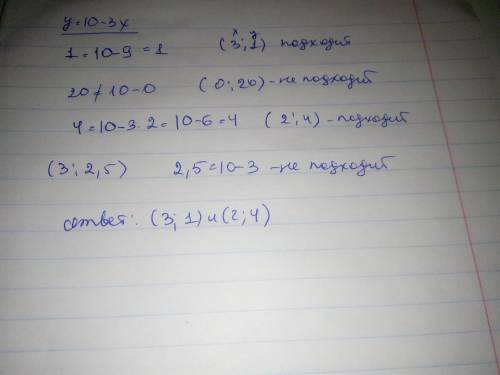 y=10-3x
1=10-9=1 (3;1) подходит
x y
20≠10-0 (0;20) - не подходит
4=10-3·2=10-6=4 (2;4) - подходит
(3;2,5) 2,5=10-3 - не подходит
ответ: (3;1) и (2;4)